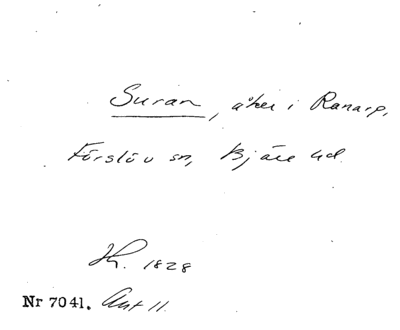 Suran, åker i Ranarp,
Förslöv sn, Bjäre hd.
1828
Nr 7041.